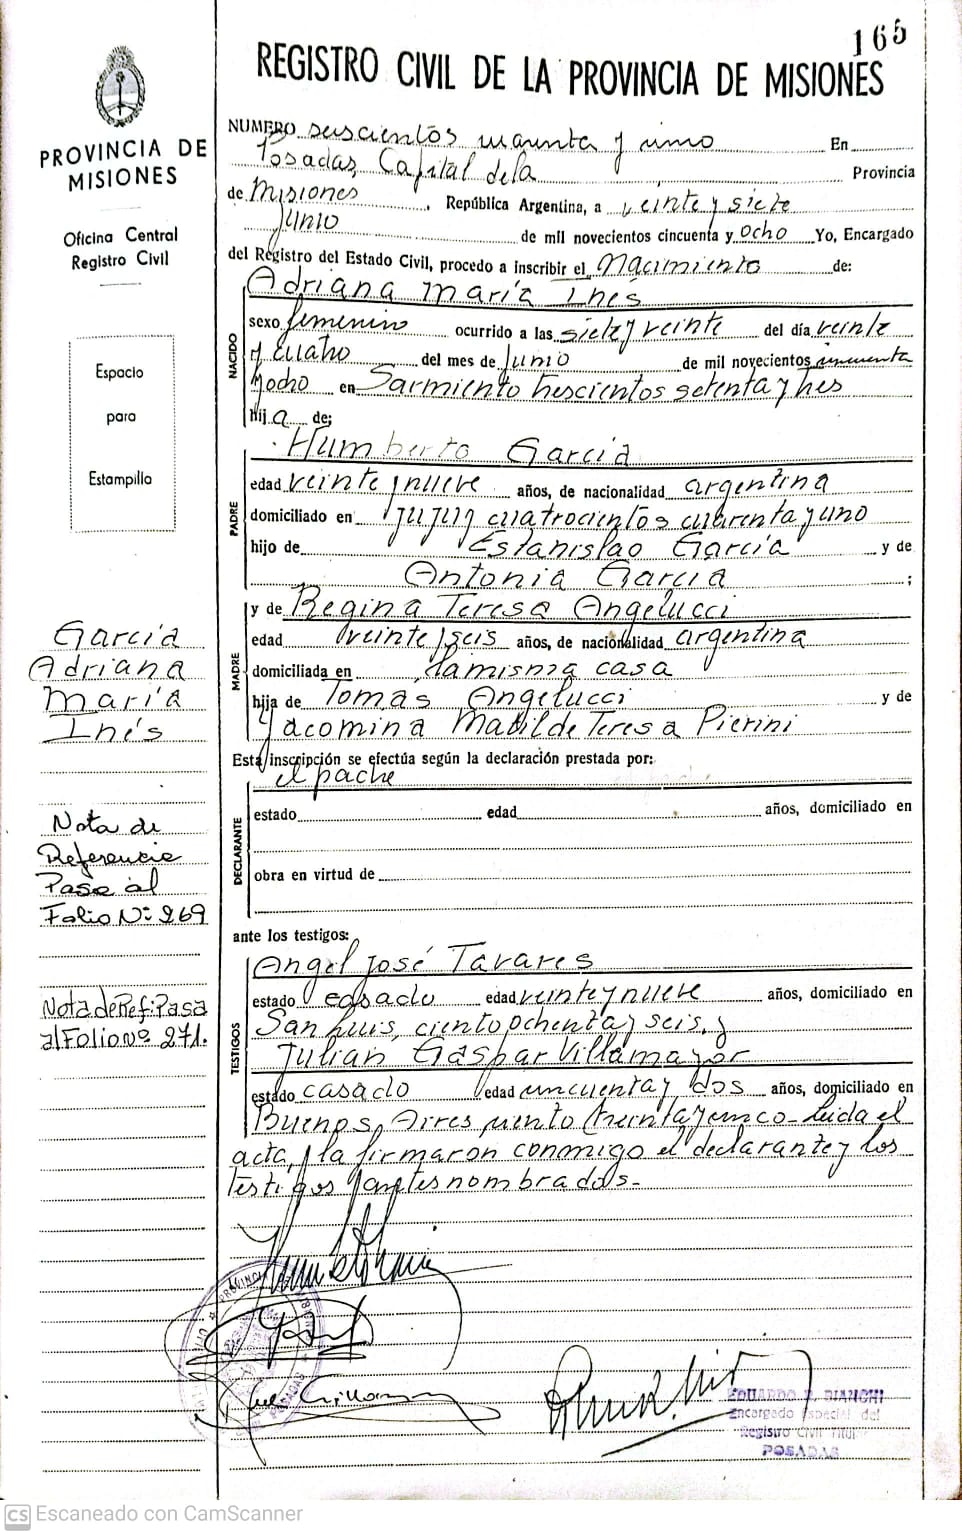 165
REGISTRO CIVIL DE LA PROVINCIA DE MISIONES
PROVINCIA DE
MISIONES
Oficina Central
Registro Civil
Espacio
para
Estampilla
García
Adriana
María
Inés
Nota de
Referencia
Pasa al
Folio Nº 269
Nota de Ref: Pasa
al Folio nº 271.
NUMERO seiscientos cuarenta y uno En
Posadas, Capital de la Provincia
de Misiones, República Argentina, a veinte y siete
Junio de mil novecientos cincuenta y ocho Yo, Encargado
del Registro del Estado Civil, procedo a inscribir el Nacimiento de:
NACIDO
Adriana María Inés
sexo femenino ocurrido a las siete y veinte del día veinte
y cuatro del mes de Junio de mil novecientos cincuenta
y ocho en Sarmiento trescientos setenta y tres
hija de;
PADRE
Humberto García
edad veinte y nueve años, de nacionalidad argentina
domiciliado en Jujuy cuatrocientos cuarenta y uno
hijo de Estanislao García y de
Antonia García ;
MADRE
y de Regina Teresa Angelucci
edad veinte y seis años, de nacionalidad argentina
domiciliada en la misma casa
hija de Tomas Angelucci y de
Jacomina Matilde Teresa Pierini
Esta inscripción se efectúa según la declaración prestada por:
el padre
DECLARANTE
estado edad años, domiciliado en
obra en virtud de
ante los testigos:
TESTIGOS
Angel José Tavares
estado casado edad veinte y nueve años, domiciliado en
San Luis, ciento ochenta y seis, y
Julian Gaspar Villamayor
estado casado edad cincuenta y dos años, domiciliado en
Buenos Aires ciento treinta y cinco- Leida el
acta, la firmaron conmigo el declarante y los
testigos antes nombrados.-
EDUARDO R. BIANCHI
Encargado Especial del
Registro Civil
POSADAS
CS Escaneado con CamScanner